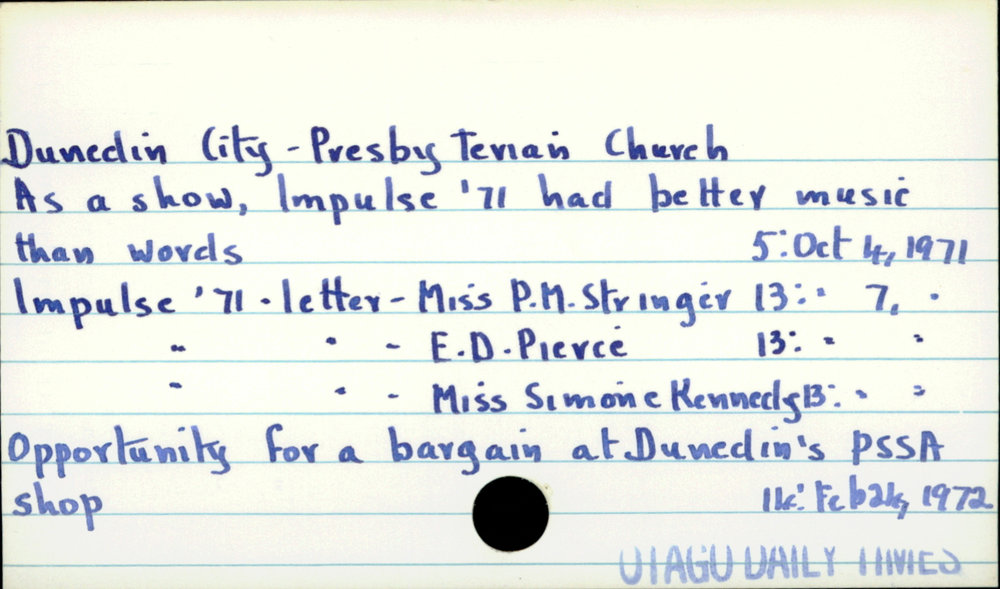 Dunedin City - Presbyterian Church
As a show, Impulse '71 had better music
than words 5: Oct 4, 1971
Impulse '71 - letter - Miss P.M. Stringer 13: " 7, "
" " - E.D. Pierce 13: " "
" " - Miss Simone Kennedy 13: " "
Opportunity for a bargain at Dunedin's PSSA
shop 14: Feb 24, 1972
OTAGO DAILY TIMES